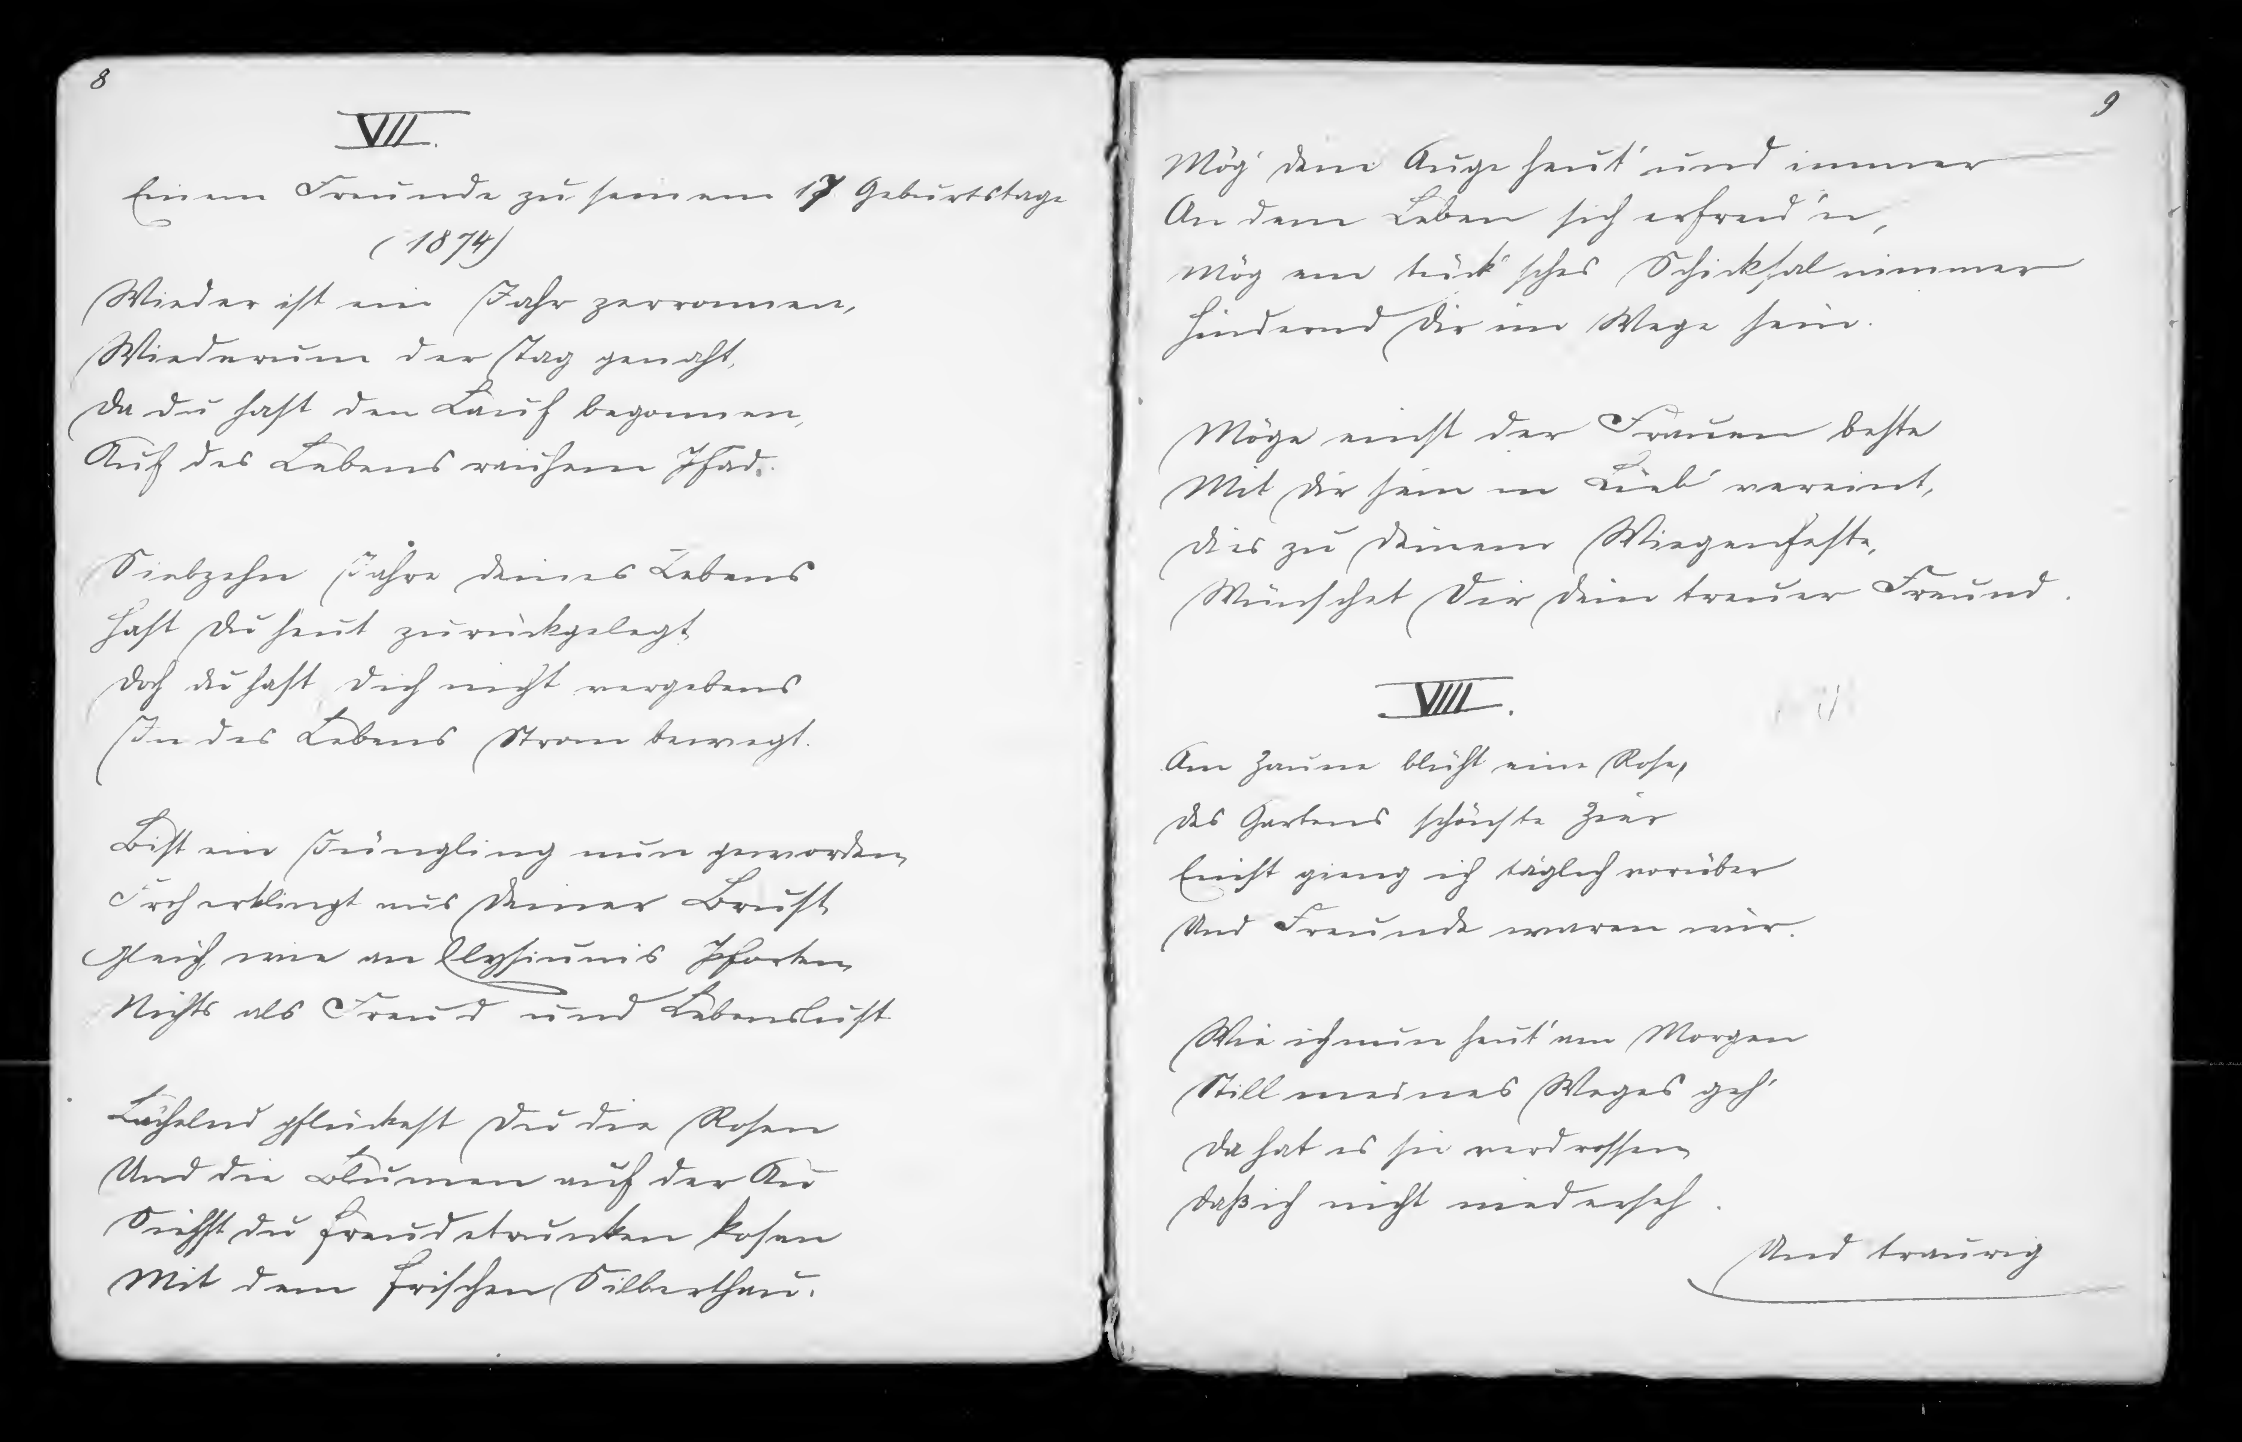 8
VII.
Einem Freunde zu seinem 17 Geburtstage
(1874)
Wieder ist ein Jahr zerronnen,
Wiederum der Tag genaht,
Da du hast den Lauf begonnen,
Auf des Lebens rauhem Pfad.
Siebzehn Jahre deines Lebens
Hast du heut zurückgelegt
Doch du hast dich nicht vergebens
In des Lebens Strom bewegt.
Bist ein Jüngling nun geworden,
Froh erklingt aus deiner Brust,
Gleich wie an Elysiums Pforten
Nichts als Freud und Lebenslust
Lächelnd pflückest du die Rosen
Und die Blumen auf der Au
Siehst du freudetrunken kosen
Mit dem frischen Silberthau.
9
Mög' dein Auge heut' und immer
An dem Leben sich erfreu'n,
Mög ein tück'sches Schicksal nimmer
Hindernd dir im Wege sein.
Möge einst der Frauen beste
Mit dir sein in Lieb' vereint,
Dies zu deinem Wiegenfeste,
Wünschet dir dein treuer Freund.
VIII.
Am Zaune blüht eine Rose,
Des Gartens schönste Zier
Einst gieng ich täglich vorüber
Und Freunde waren wir.
Wie ich nun heut' am Morgen
Still meines Weges geh'
Da hat es sie verdrossen
Daß ich nicht niederseh.
Und traurig